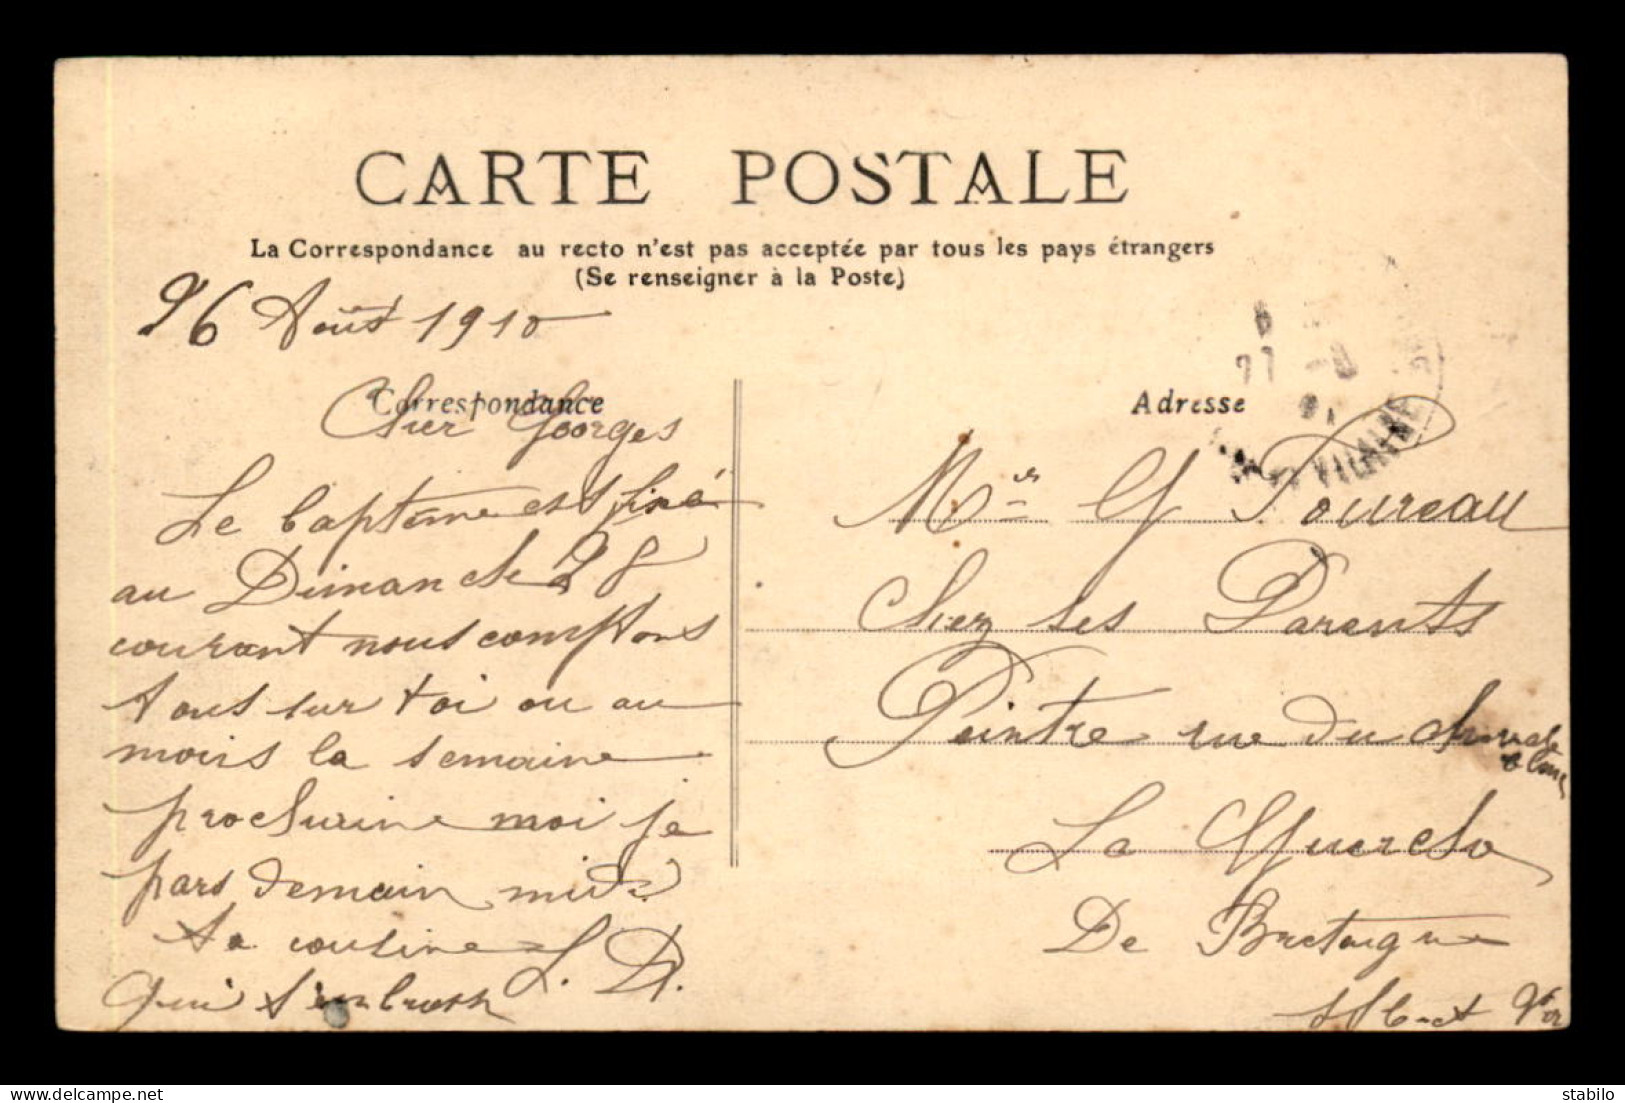 CARTE POSTALE
La Correspondance au recto n'est pas acceptée par tous les pays étrangers
(Se renseigner à la Poste)
26 Août 1910
Correspondance
Cher Georges
Le baptême est fixé
au Dimanche 28
courant nous comptons
tous sur toi ou au
moins la semaine
prochaine moi je
pars demain midi
Ta cousine L. D.
qui t'embrasse
Adresse
VILAINE
Mr G Toureau
Chez ses Parents
Peintre rue du cheval
blanc
La Guerche
De Bretagne
Ille et
delcampe.net
stabilo